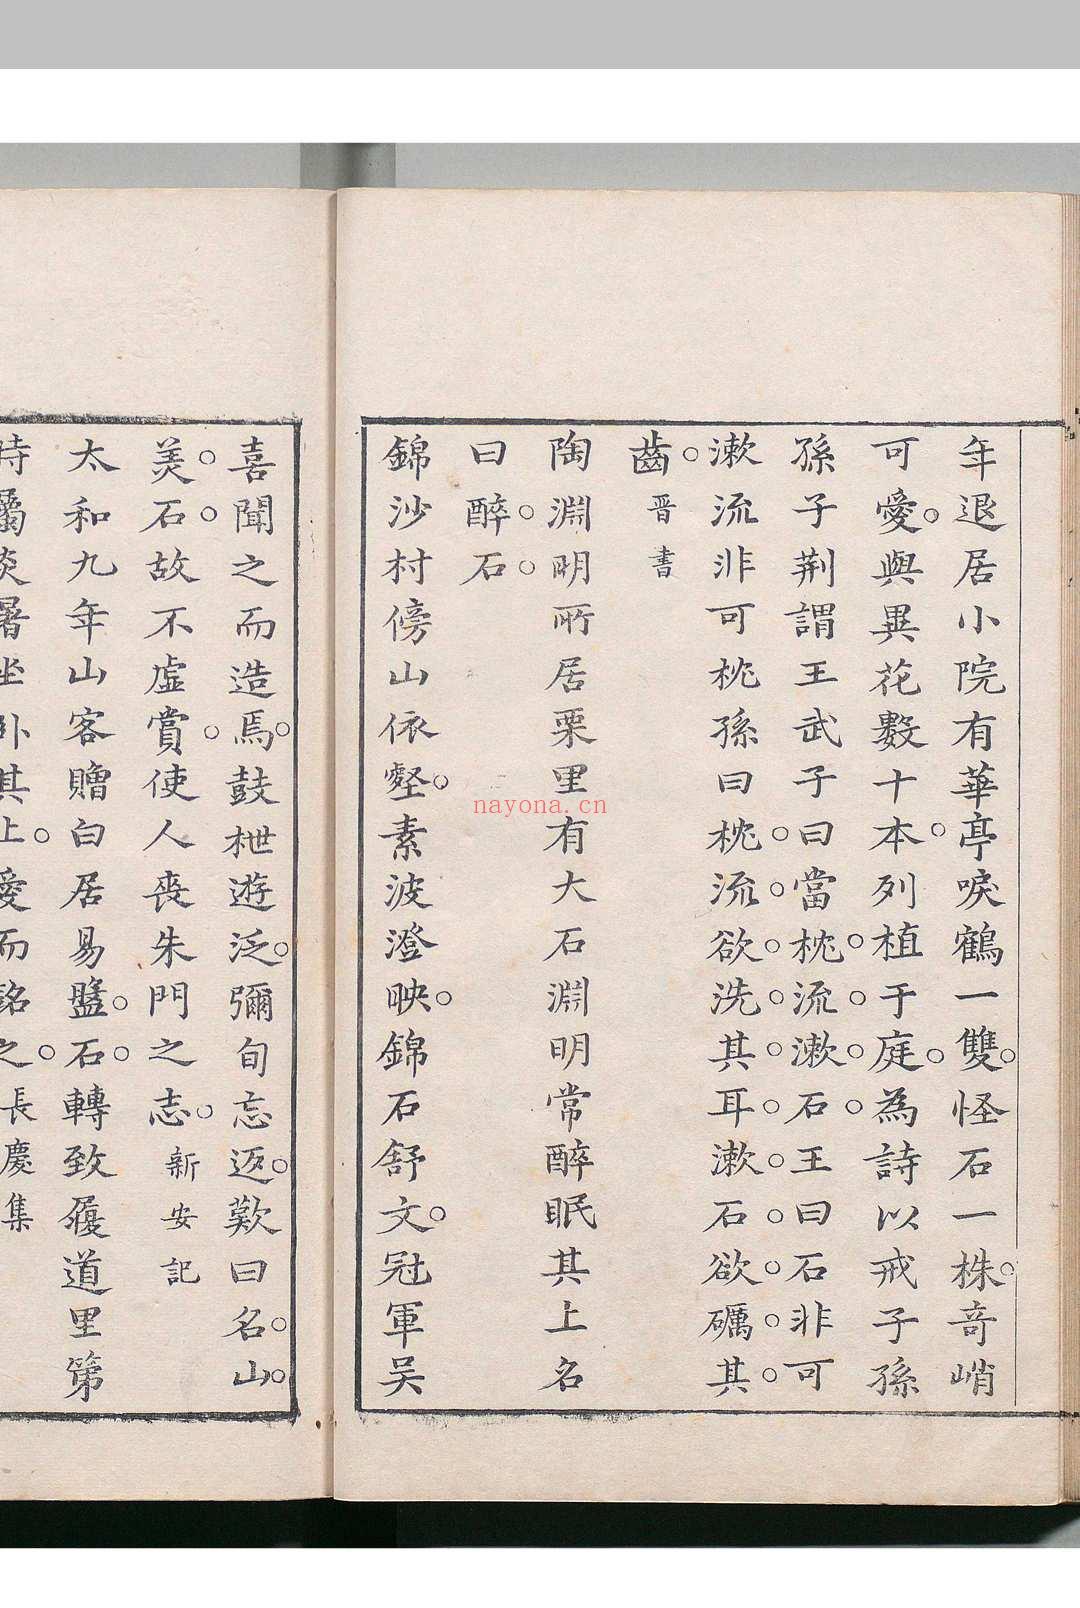 年退居小院有華亭唳鶴一雙怪石一株奇峭
可愛與異花數十本列植于庭為詩以戒子孫
孫子荆謂王武子曰當枕流漱石王曰石非可
漱流非可枕孫曰枕流欲洗其耳漱石欲礪其
齒晋書
陶淵明所居栗里有大石淵明常醉眠其上名
曰醉石
錦沙村傍山依壑素波澄映錦石舒文冠軍吴
喜聞之而造焉鼓枻遊泛彌旬忘返歎曰名山
美石故不虛賞使人喪朱門之志新安記
太和九年山客贈白居易盤石轉致履道里第
時屬炎暑坐卧其上愛而銘之長慶集
nayona.cn